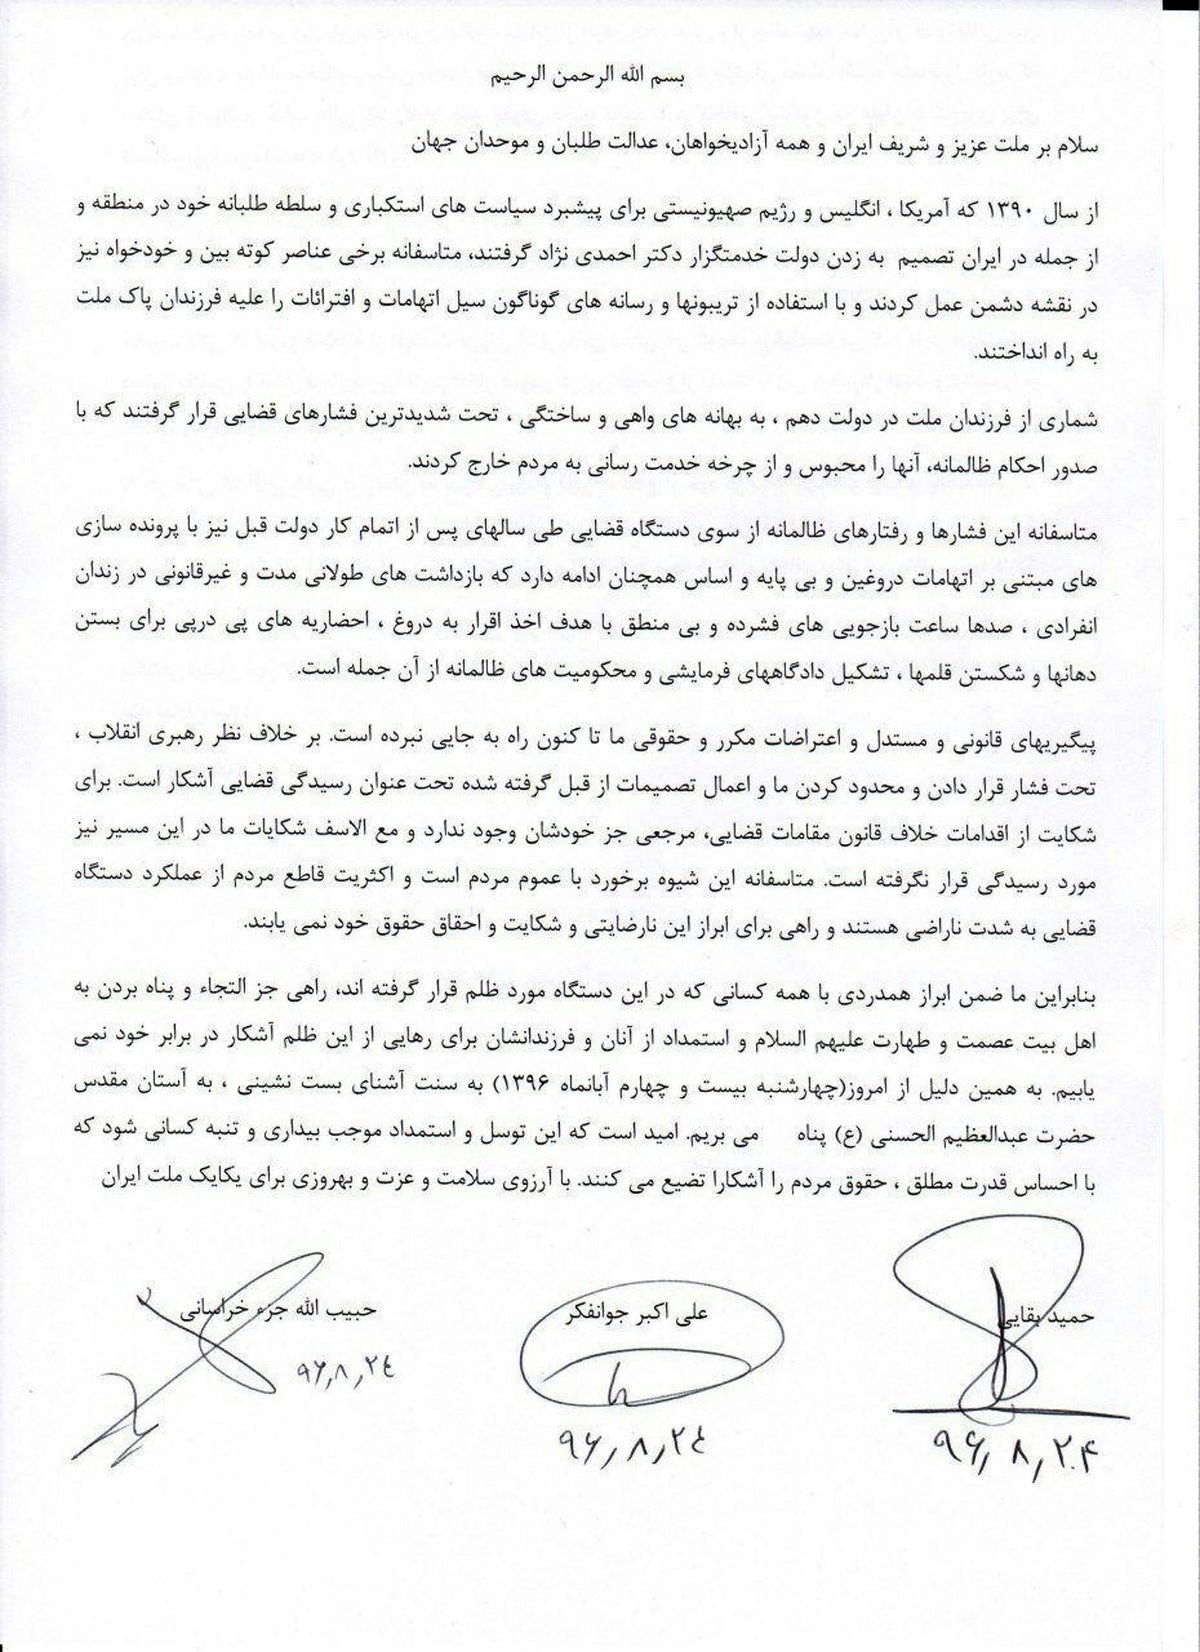 بسم الله الرحمن الرحیم
سلام بر ملت عزیز و شریف ایران و همه آزادیخواهان، عدالت طلبان و موحدان جهان
از سال ۱۳۹۰ که آمریکا ، انگلیس و رژیم صهیونیستی برای پیشبرد سیاست های استکباری و سلطه طلبانه خود در منطقه و
از جمله در ایران تصمیم به زدن دولت خدمتگزار دکتر احمدی نژاد گرفتند، متاسفانه برخی عناصر کوته بین و خودخواه نیز
در نقشه دشمن عمل کردند و با استفاده از تریبونها و رسانه های گوناگون سیل اتهامات و افترائات را علیه فرزندان پاک ملت
به راه انداختند.
شماری از فرزندان ملت در دولت دهم ، به بهانه های واهی و ساختگی ، تحت شدیدترین فشارهای قضایی قرار گرفتند که با
صدور احکام ظالمانه، آنها را محبوس و از چرخه خدمت رسانی به مردم خارج کردند.
متاسفانه این فشارها و رفتارهای ظالمانه از سوی دستگاه قضایی طی سالهای پس از اتمام کار دولت قبل نیز با پرونده سازی
های مبتنی بر اتهامات دروغین و بی پایه و اساس همچنان ادامه دارد که بازداشت های طولانی مدت و غیرقانونی در زندان
انفرادی ، صدها ساعت بازجویی های فشرده و بی منطق با هدف اخذ اقرار به دروغ ، احضاریه های پی درپی برای بستن
دهانها و شکستن قلمها ، تشکیل دادگاههای فرمایشی و محکومیت های ظالمانه از آن جمله است.
پیگیریهای قانونی و مستدل و اعتراضات مکرر و حقوقی ما تا کنون راه به جایی نبرده است. بر خلاف نظر رهبری انقلاب ،
تحت فشار قرار دادن و محدود کردن ما و اعمال تصمیمات از قبل گرفته شده تحت عنوان رسیدگی قضایی آشکار است. برای
شکایت از اقدامات خلاف قانون مقامات قضایی، مرجعی جز خودشان وجود ندارد و مع الاسف شکایات ما در این مسیر نیز
مورد رسیدگی قرار نگرفته است. متاسفانه این شیوه برخورد با عموم مردم است و اکثریت قاطع مردم از عملکرد دستگاه
قضایی به شدت ناراضی هستند و راهی برای ابراز این نارضایتی و شکایت و احقاق حقوق خود نمی یابند.
بنابراین ما ضمن ابراز همدردی با همه کسانی که در این دستگاه مورد ظلم قرار گرفته اند، راهی جز التجاء و پناه بردن به
اهل بیت عصمت و طهارت علیهم السلام و استمداد از آنان و فرزندانشان برای رهایی از این ظلم آشکار در برابر خود نمی
یابیم. به همین دلیل از امروز(چهارشنبه بیست و چهارم آبانماه ۱۳۹۶) به سنت آشنای بست نشینی ، به آستان مقدس
حضرت عبدالعظیم الحسنی (ع) پناه می بریم. امید است که این توسل و استمداد موجب بیداری و تنبه کسانی شود که
با احساس قدرت مطلق ، حقوق مردم را آشکارا تضیع می کنند. با آرزوی سلامت و عزت و بهروزی برای یکایک ملت ایران
حمید بقایی علی اکبر جوانفکر حبیب الله جزء خراسانی
۹۶٫۸٫۲۴ ۹۶٫۸٫۲٤ ۹۶٫۸٫۲٤